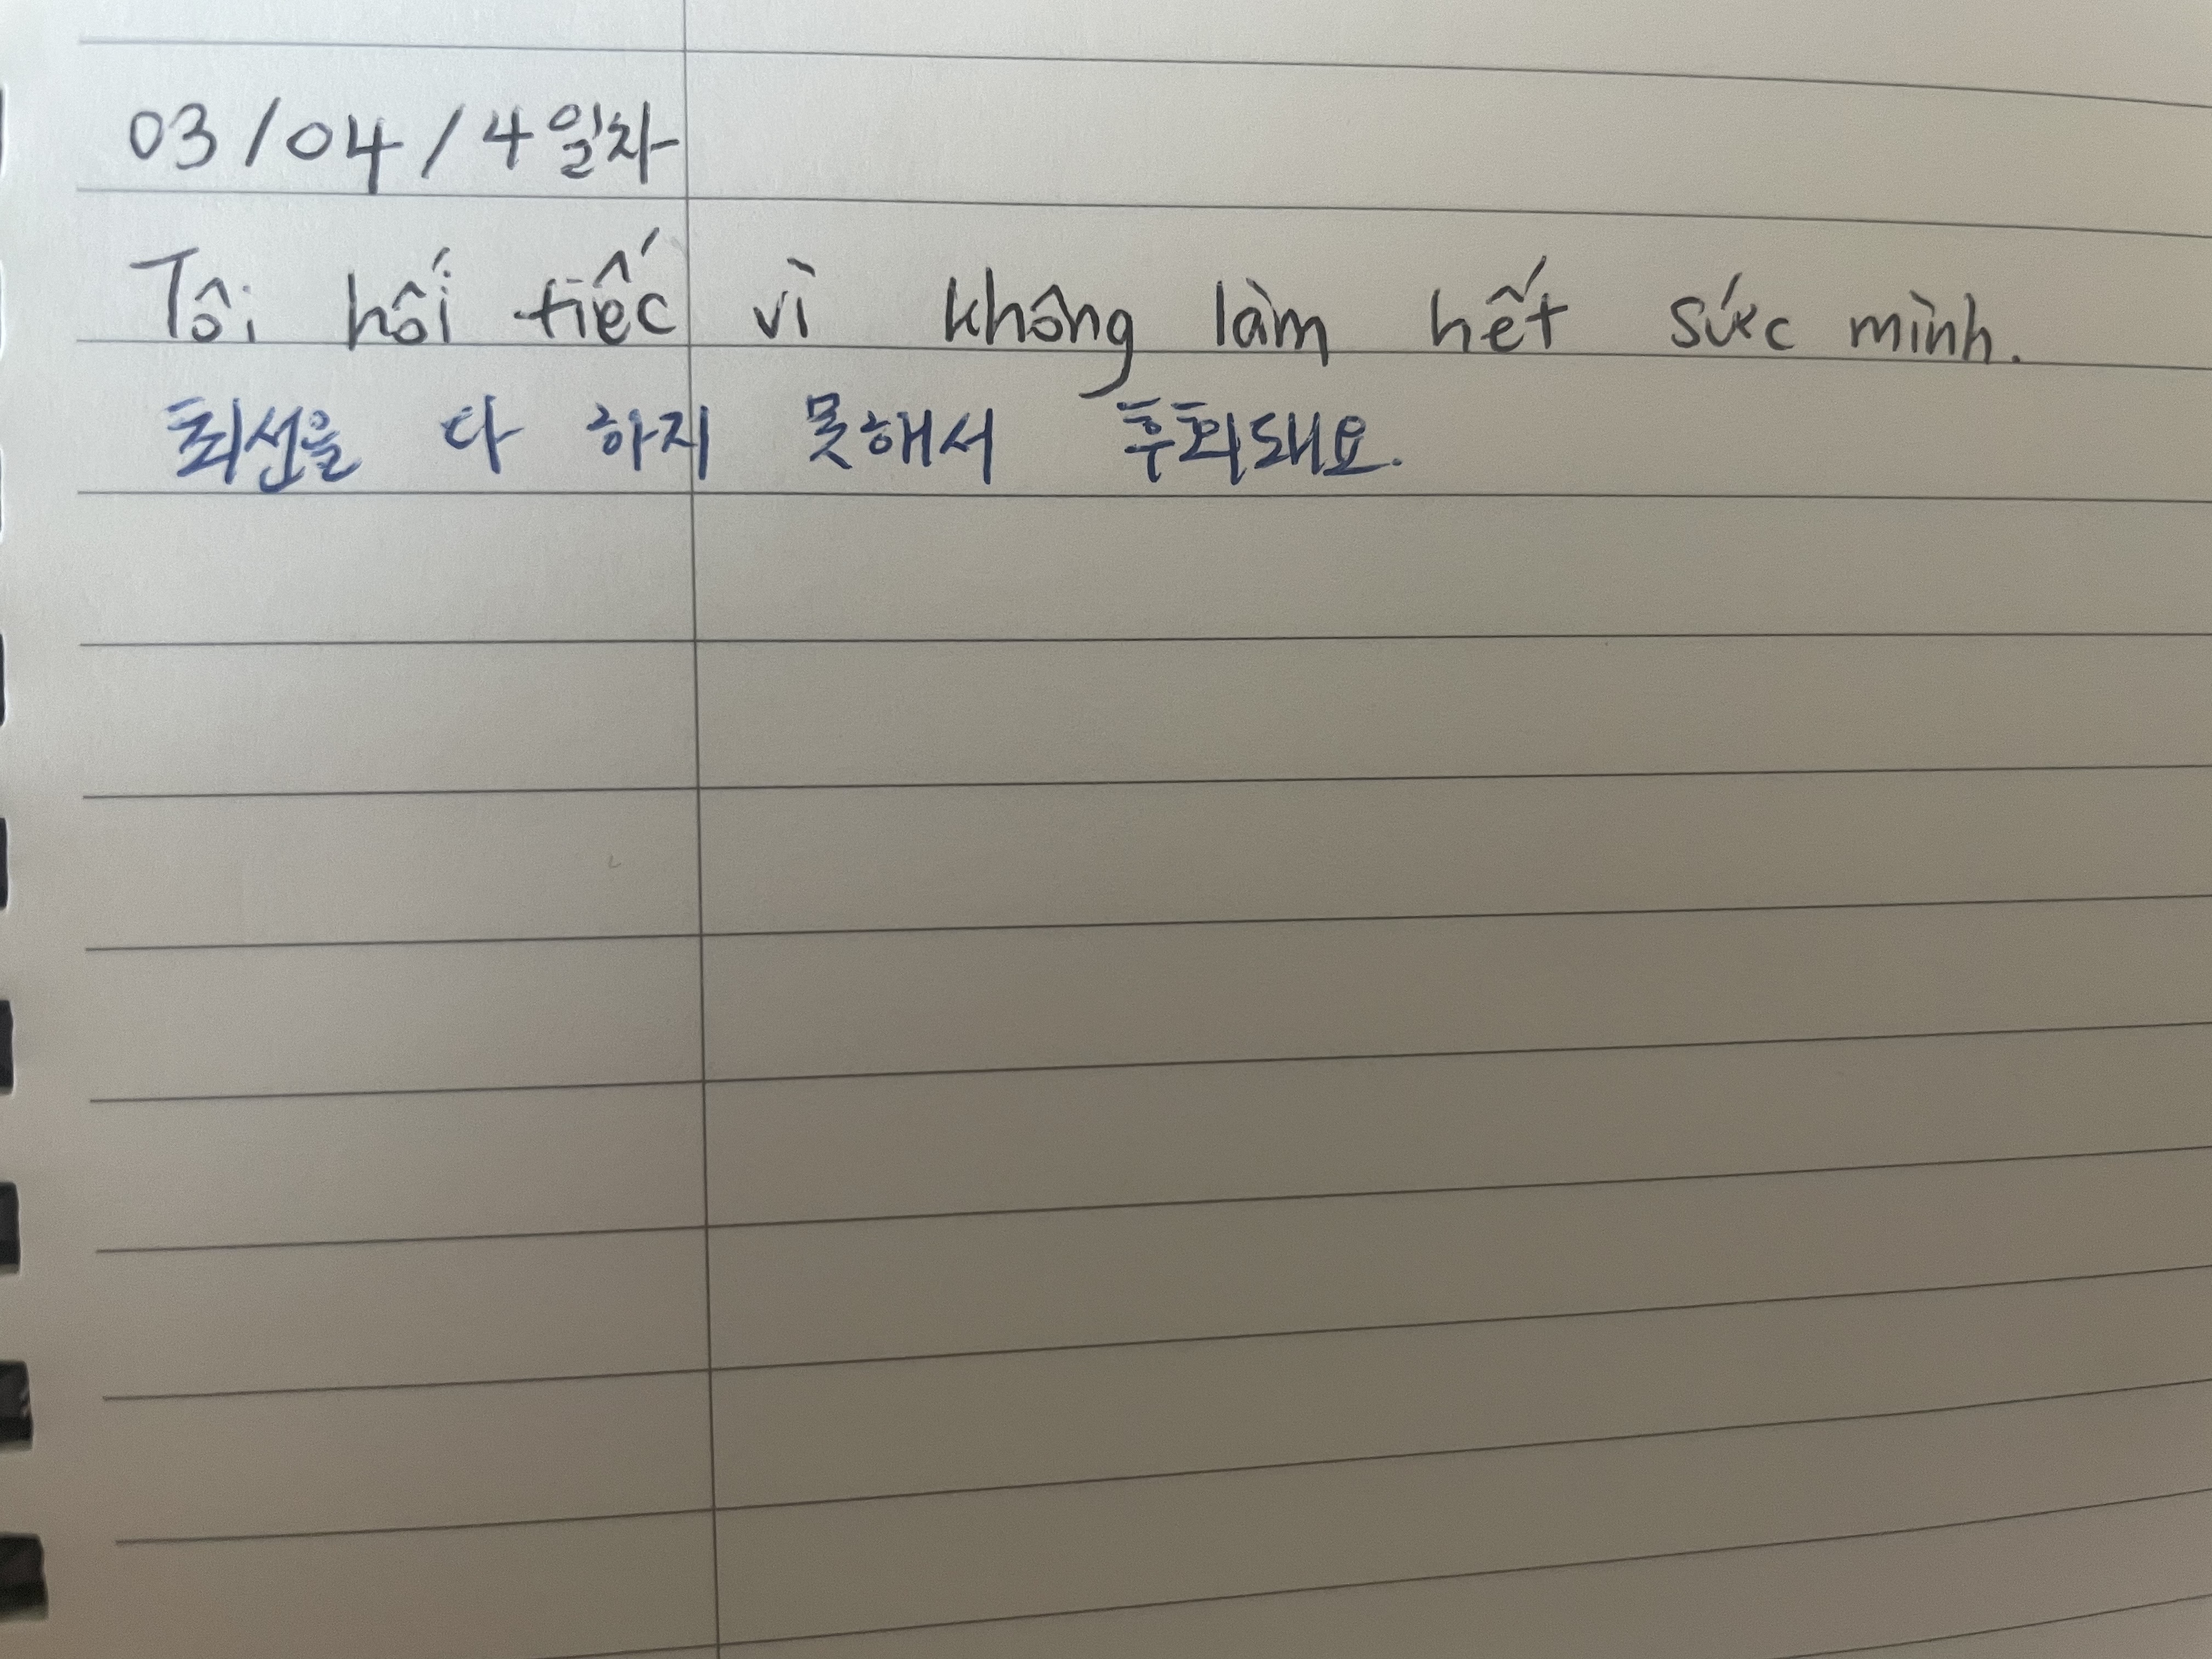 03/04/4일차
Tôi hối tiếc vì không làm hết sức mình.
최선을 다 하지 못해서 후회돼요.